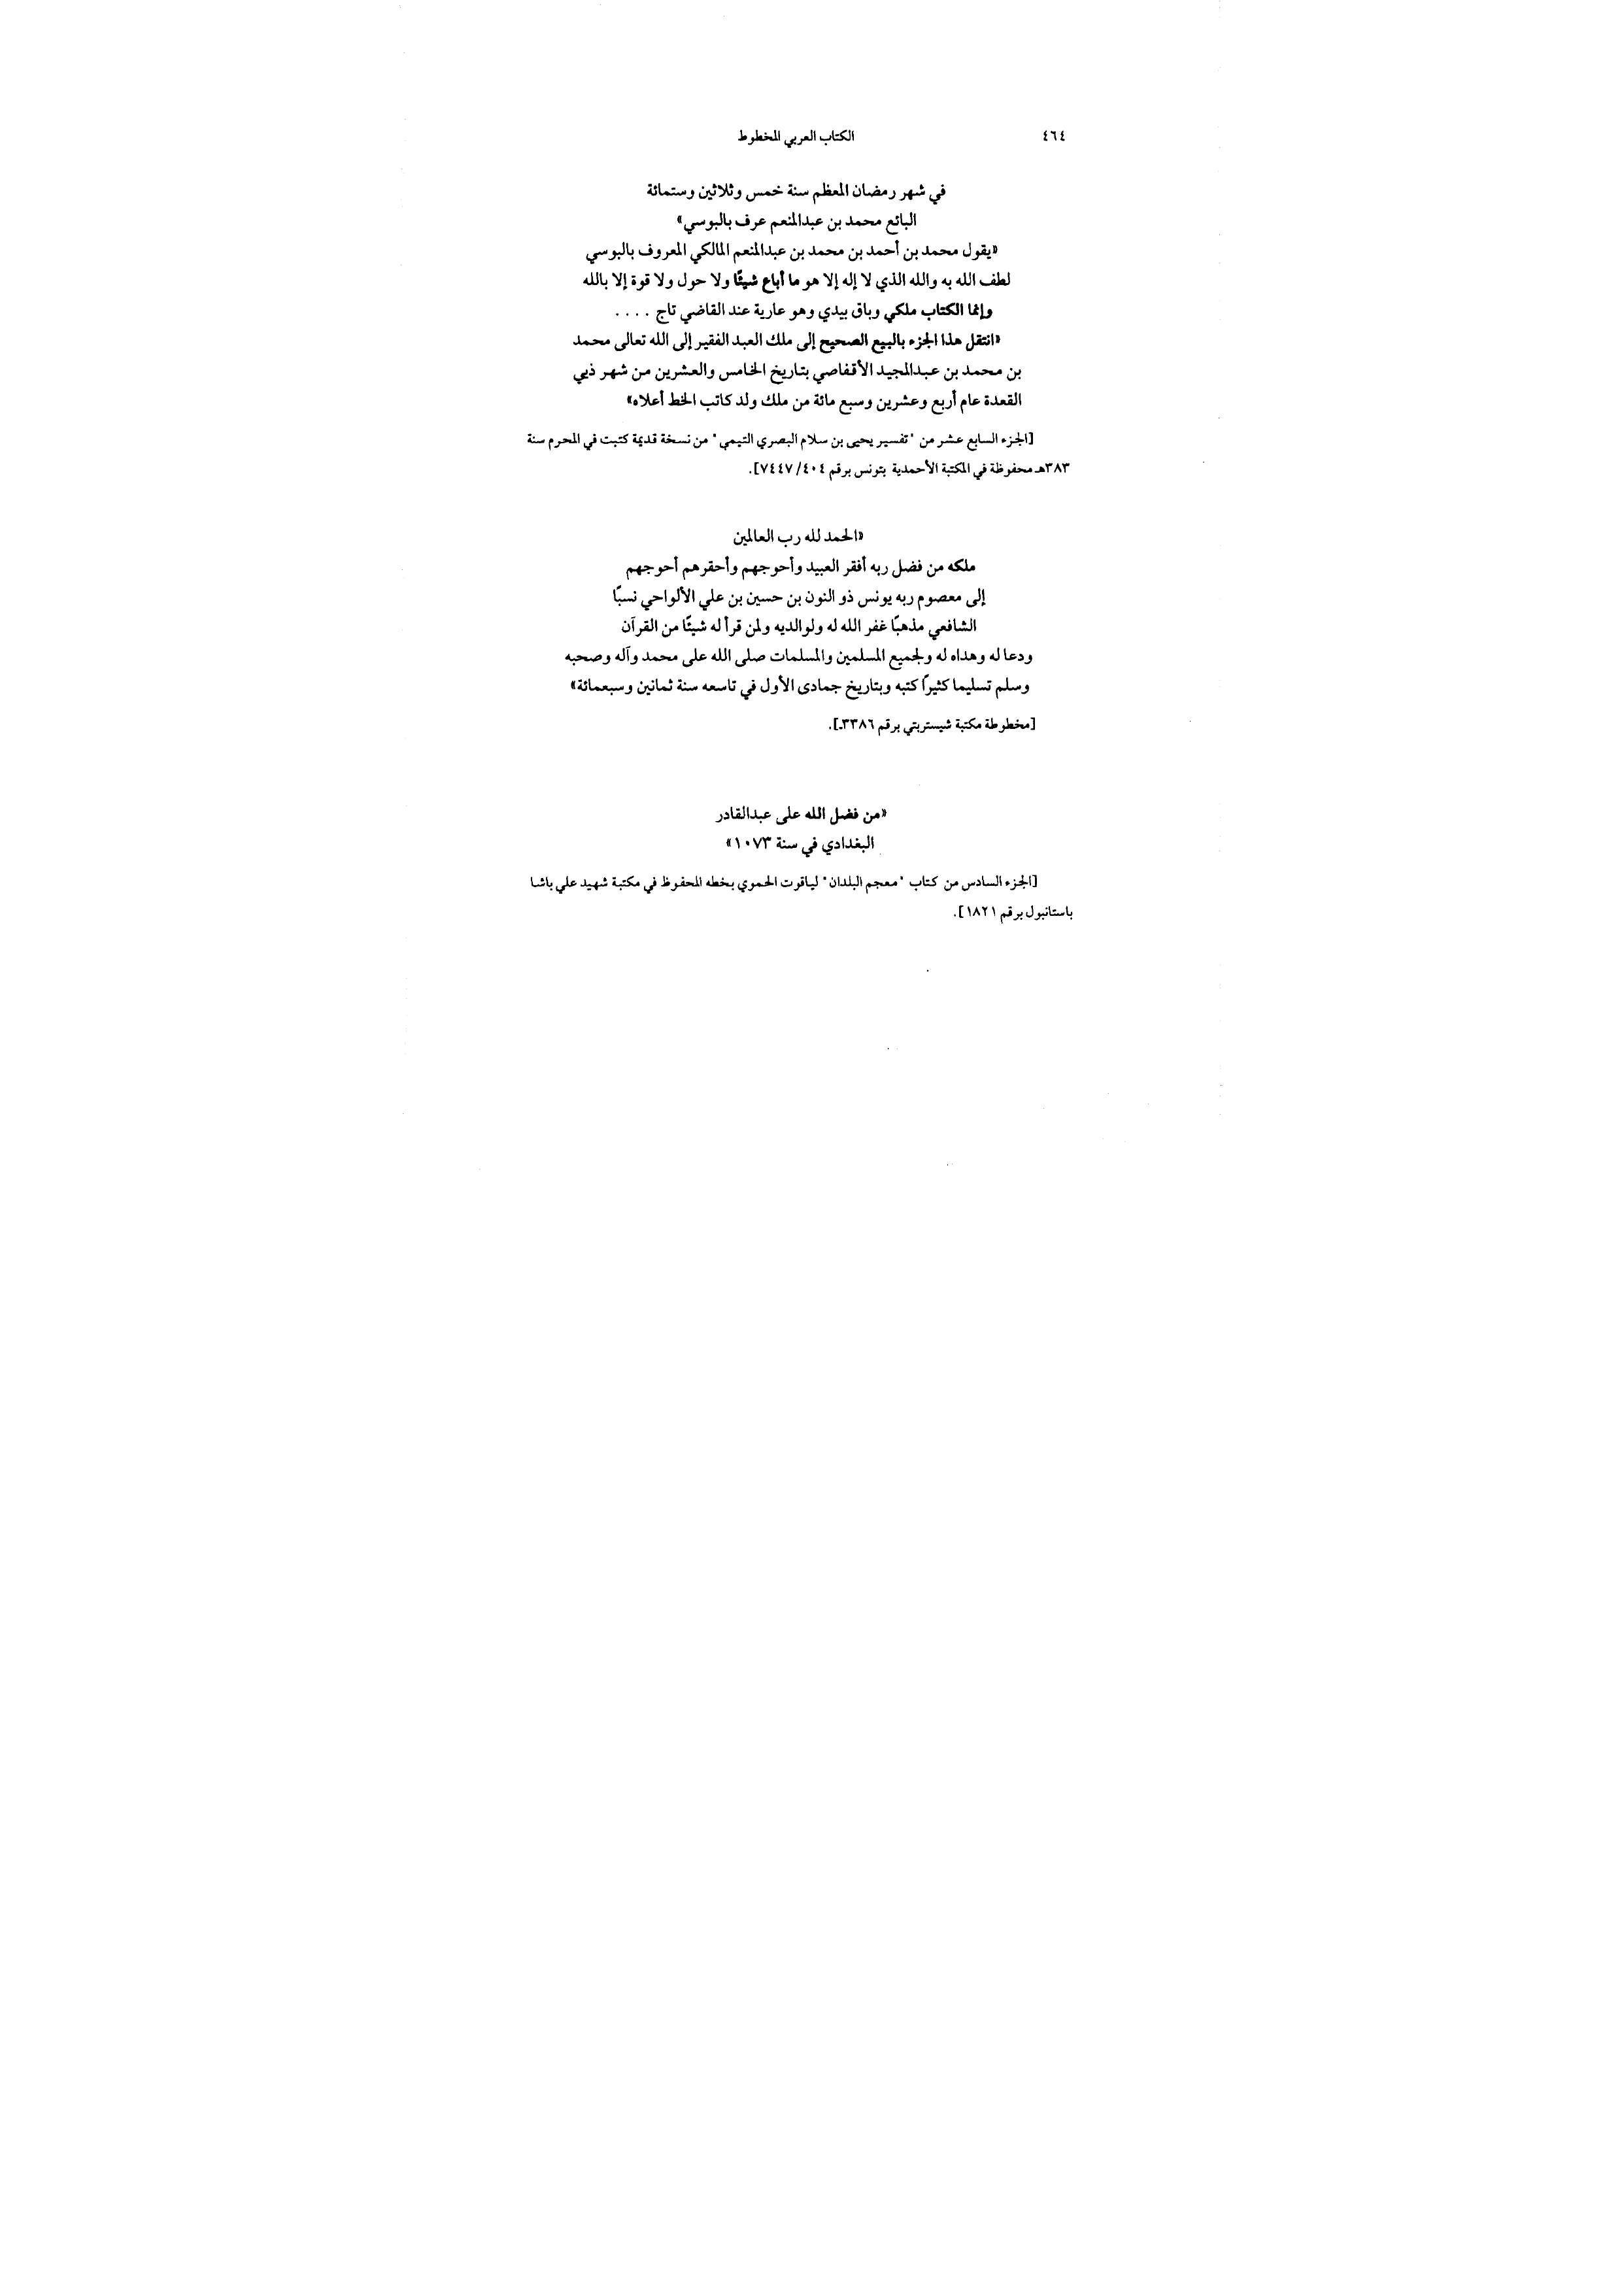 ٤٦٤
الكتاب العربي المخطوط
في شهر رمضان المعظم سنة خمس وثلاثين وستمائة
البائع محمد بن عبدالمنعم عرف بالبوسي»
«يقول محمد بن أحمد بن محمد بن عبدالمنعم المالكي المعروف بالبوسي
لطف الله به والله الذي لا إله إلا هو ما أباع شيئًا ولا حول ولا قوة إلا بالله
وإنما الكتاب ملكي وباق بيدي وهو عارية عند القاضي تاج . . . .
«انتقل هذا الجزء بالبيع الصحيح إلى ملك العبد الفقير إلى الله تعالى محمد
بن محمد بن عبدالمجيد الأقفاصي بتاريخ الخامس والعشرين من شهر ذيي
القعدة عام أربع وعشرين وسبع مائة من ملك ولد كاتب الخط أعلاه»
[الجزء السابع عشر من "تفسير يحيى بن سلام البصري التيمي" من نسخة قديمة كتبت في المحرم سنة
٣٨٣هـ محفوظة في المكتبة الأحمدية بتونس برقم ٧٤٤٧/٤٠٤].
«الحمد لله رب العالمين
ملكه من فضل ربه أفقر العبيد وأحوجهم وأحقرهم أحوجهم
إلى معصوم ربه يونس ذو النون بن حسين بن علي الألواحي نسبًا
الشافعي مذهبًا غفر الله له ولوالديه ولمن قرأ له شيئًا من القرآن
ودعا له وهداه له ولجميع المسلمين والمسلمات صلى الله على محمد وآله وصحبه
وسلم تسليما كثيرًا كتبه وبتاريخ جمادى الأول في تاسعه سنة ثمانين وسبعمائة»
[مخطوطة مكتبة شيستربتي برقم ٣٣٨٦ـ].
«من فضل الله على عبدالقادر
البغدادي في سنة ١٠٧٣»
[الجزء السادس من كتاب "معجم البلدان" لياقوت الحموي بخطه المحفوظ في مكتبة شهيد علي باشا
باستانبول برقم ١٨٢١].